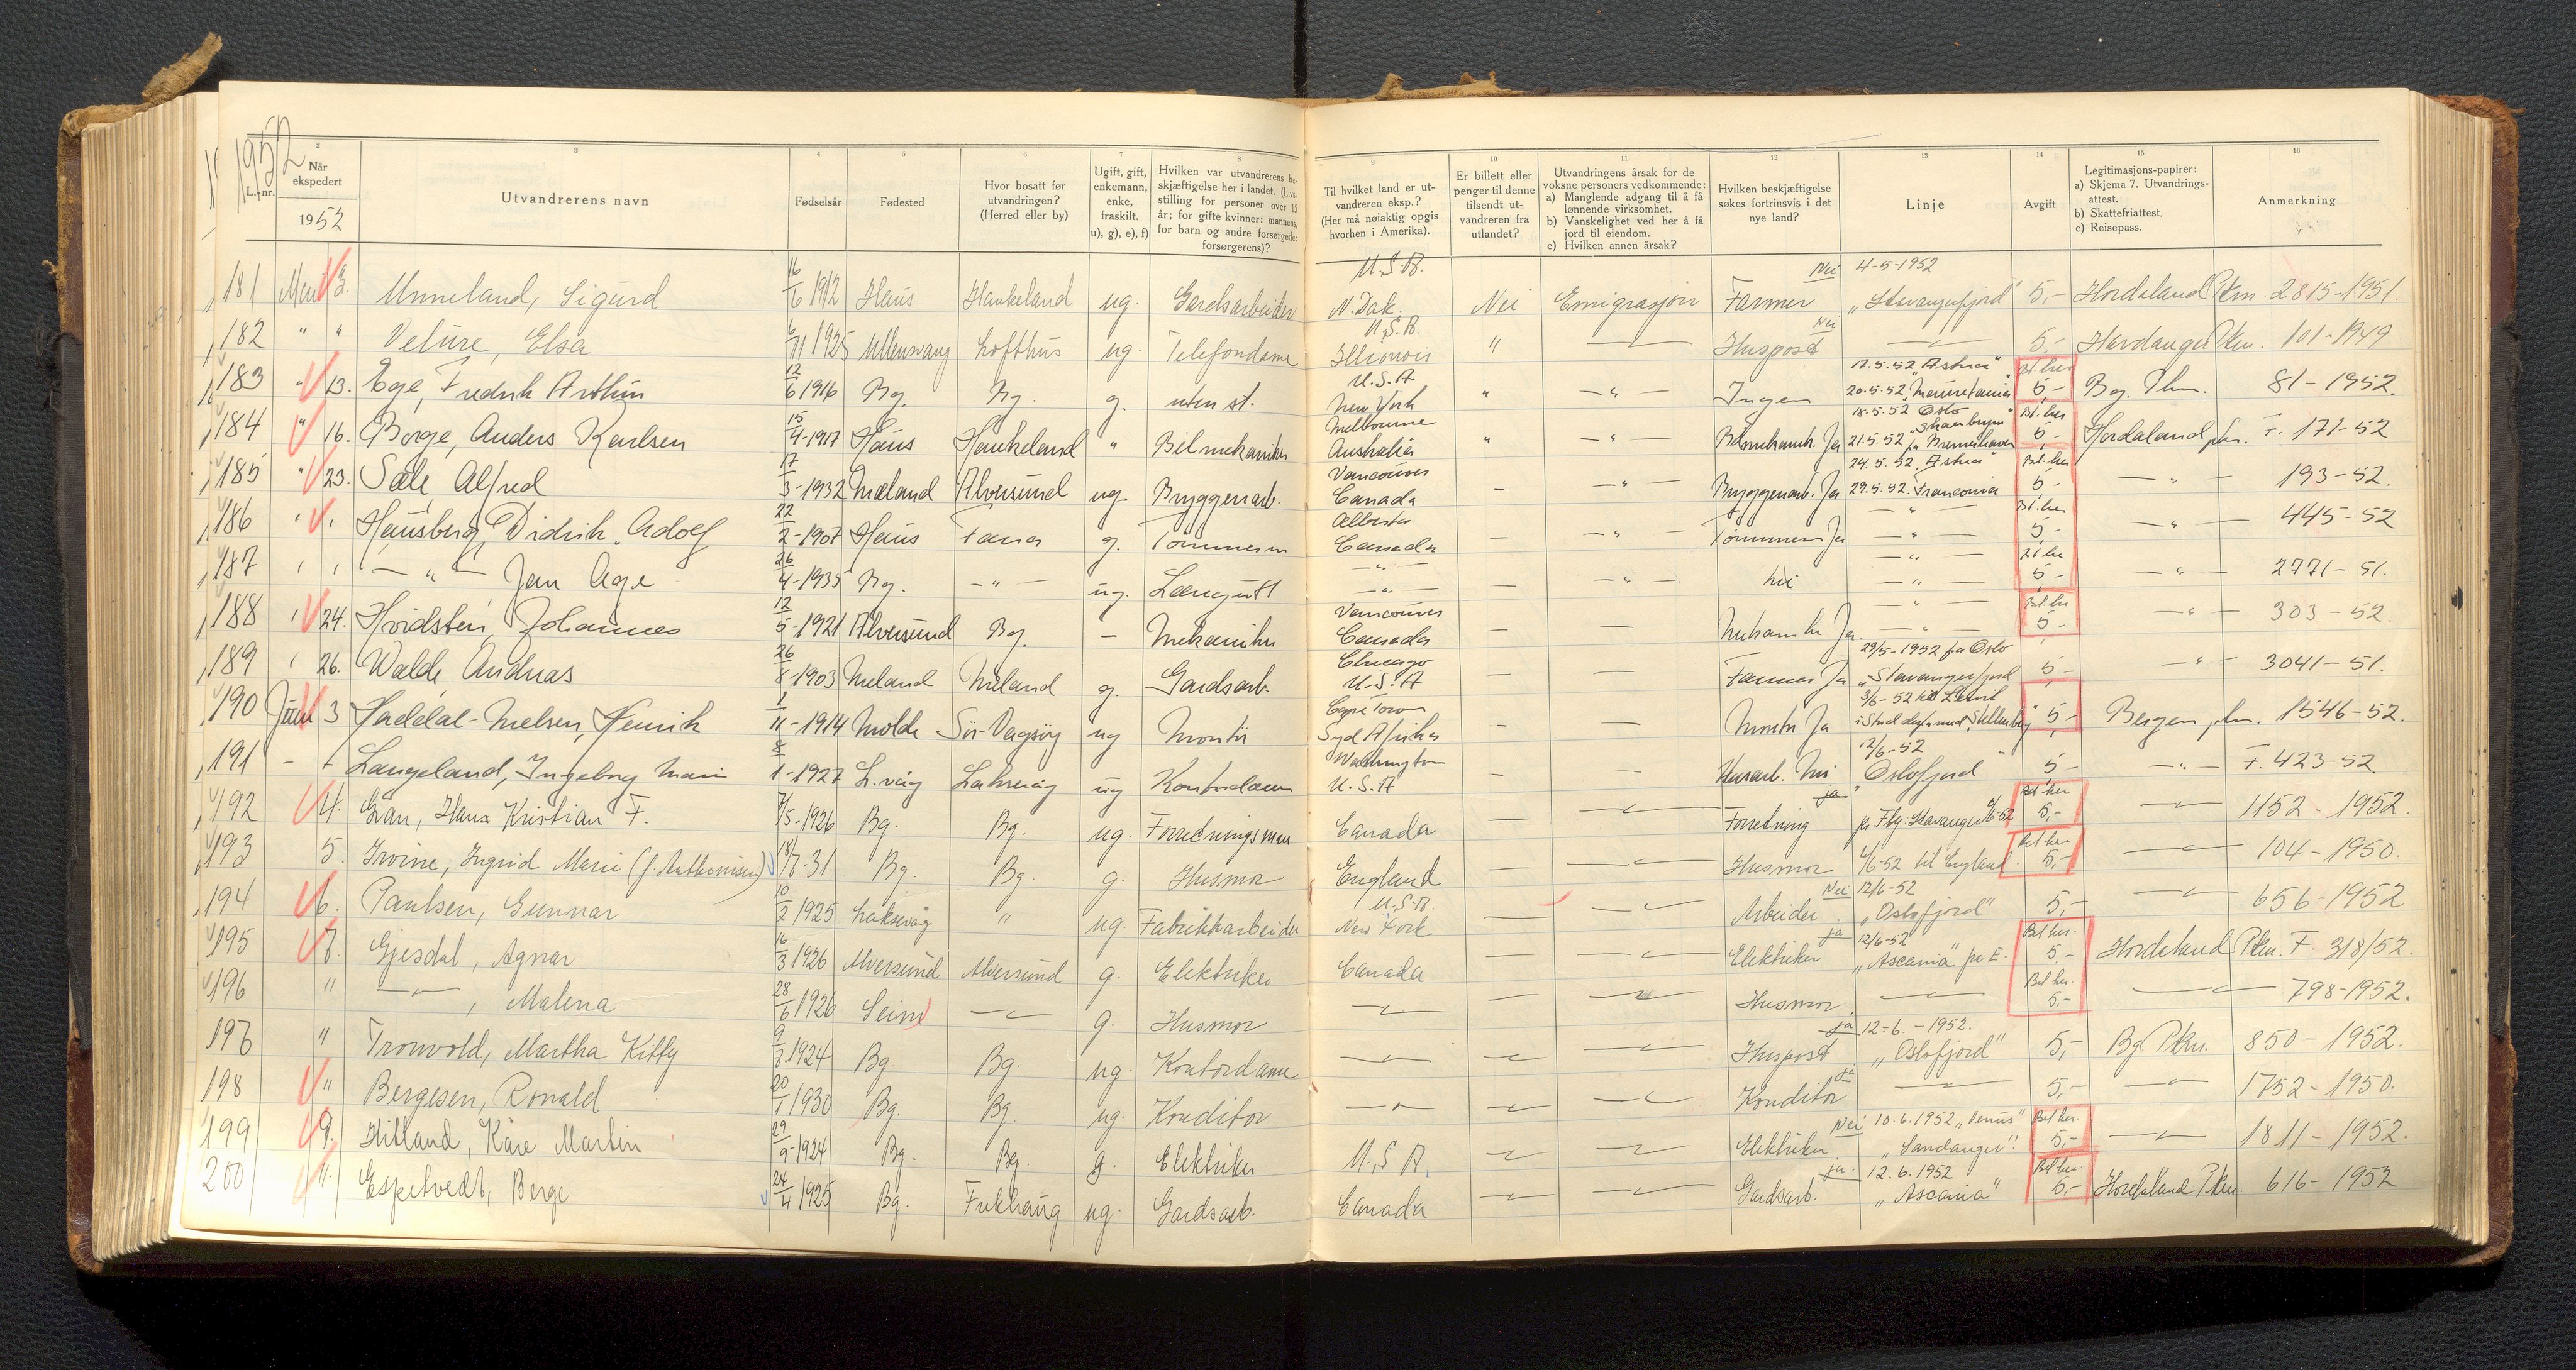 1952
L.-nr.
2
Når ekspedert
1952
3
Utvandrerens navn
4
Fødselsår
5
Fødested
6
Hvor bosatt før utvandringen? (Herred eller by)
7
Ugift, gift, enkemann, enke, fraskilt. u), g), e), f)
8
Hvilken var utvandrerens beskjæftigelse her i landet. (Livsstilling for personer over 15 år; for gifte kvinner: mannens, for barn og andre forsørgede: forsørgerens)?
9
Til hvilket land er utvandreren eksp.? (Her må nøiaktig opgis hvorhen i Amerika).
10
Er billett eller penger til denne tilsendt utvandreren fra utlandet?
11
Utvandringens årsak for de voksne personers vedkommende:
a) Manglende adgang til å få lønnende virksomhet.
b) Vanskelighet ved her å få jord til eiendom.
c) Hvilken annen årsak?
12
Hvilken beskjæftigelse søkes fortrinsvis i det nye land?
13
Linje
14
Avgift
15
Legitimasjons-papirer:
a) Skjema 7. Utvandringsattest.
b) Skattefriattest.
c) Reisepass.
16
Anmerkning
181 Mai 3. Unneland, Sigurd 16/6 1912 Haus Haukeland ug. Gardsarbeider U.S.A. N. Dak. Nei Emigrasjon Farmer Nei 4-5-1952 „Stavangerfjord" 5,- Hordaland Pkm. 2815-1951.
182 " " Velure, Elsa 6/11 1925 Ullensvang Lofthus ug. Telefondame U.S.A. Illionois " — Huspost Nei — 5,- Hardanger Pkm. 101-1949
183 " 13. Ege, Fredrik Arthur 12/6 1916 Bg. Bg. g. uten st. U.S.A New York " — " — Ingen 17.5.52 „Astrea" 20.5.52 „Mauretania" Bet. her 5,- Bg. Pkm. 81-1952.
184 " 16. Borge, Anders Karlsen 15/4-1917 Haus Haukeland " Bilmekaniker Melbourne Australia " — " — Bilmekanik. Ja 18.5.52 Oslo 21.5.52 fra Bremerhaven Bet. her 5,- Hordaland pkm. F. 171-52
185 " 23. Sæle Alfred 17/3-1932 Meland Alversund ug. Bryggearb. Vancouver Canada - — " — Bryggearb. Ja 24.5.52 „Astrea" 29.5.52. Franconia Bet. her 5- — " — 193-52.
186 " " Hausberg, Didrik Adolf 22/2-1907 Haus Fana g. Tømmerm Alberta Canada — — " — Tømmerm Ja — " — Bet. her 5,- — " — 445-52
187 " " — " — Jan Åge 26/4-1935 Bg. — " — ug. Læregutt — " — — — " — Nei — " — Bet. her 5- — " — 2771-51.
188 " 24. Hvidsten Johannes 12/5-1921 Alversund Bg. - Mekaniker Vancouver Canada — — Mekaniker Ja — " — Bet. her 5- — " — 303-52.
189 " 26. Walde Andreas 26/8-1903 Meland Meland g. Gardsarb. Chicago U.S.A — — Farmer Ja 29/5-1952 fra Oslo „Stavangerfjord 5- — " — 3041-51.
190 Juni 3 Haddal-Nielsen, Henrik 1/11-1914 Molde Sør-Vågsøy ug Montør Cape Town Syd Afrika — — Montør Ja 3/6-52 5,- Bergen pkm. 1546-52.
191 - " Langeland, Ingeborg Marie 8/1-1927 L.våg Laksevåg ug Kontordame Washington U.S.A — — Husarb. Nei 12/6-52 Oslofjord 5- — " — F. 423-52.
192 4. Gran, Hans Kristian F. 7/5-1926 Bg. Bg. ug. Forretningsman Canada — — " — Forretning ja pr Fly. Stavanger Bet her 5,- — " — 1152-1952.
193 5. Irvine, Ingrid Marie (f. Anthonisen) 18/7-31 Bg. Bg. g. Husmor England — — " — Husmor 6/6-52 til England. Bet her 5,- — " — 104-1950.
194 6. Paulsen, Gunnar 10/2 1925 Laksevåg " ug. Fabrikkarbeider U.S.A. New York — — " — Arbeider Nei 12/6-52 „Oslofjord" 5,- — " — 656-1952
195 7. Gjesdal, Agnar 16/3 1926 Alversund Alversund g. Elektriker Canada — — " — Elektriker ja 12/6-52 „Ascania" fra E. Bet her. 5.- Hordaland Pkm. F. 318/52.
196 " — " —, Malena 28/6 1926 Seim — " — g. Husmor — " — — — " — Husmor — " — Bet her. 5.- — " — 798-1952.
197 " Tronvold, Martha Kitty 9/3 1924 Bg. Bg. ug. Kontordame — " — — " — — " — Huspost ja 12-6.-1952. „Oslofjord" 5,- Bg. Pkm. 850-1952.
198 " Bergesen, Ronald 20/1 1930 Bg. Bg. ug. Konditor — " — — " — — " — Konditor ja — " — 5,- — " — 1752-1950.
199 9. Hitland, Kåre Martin 29/9-1924 Bg. Bg. g. Elektriker U.S.A. — " — — " — Elektriker. Nei 10.6.1952 „Venus" „Sandanger" Bet her. 5,- — " — 1811-1952.
200 11. Espetvedt, Berge 24/4 1925 Bg. Frekhaug ug. Gardsarb. Canada — " — — " — Gardsarb. ja. 12.6.1952 „Ascania" Bet her 5,- Hordaland Pkm. 616-1952